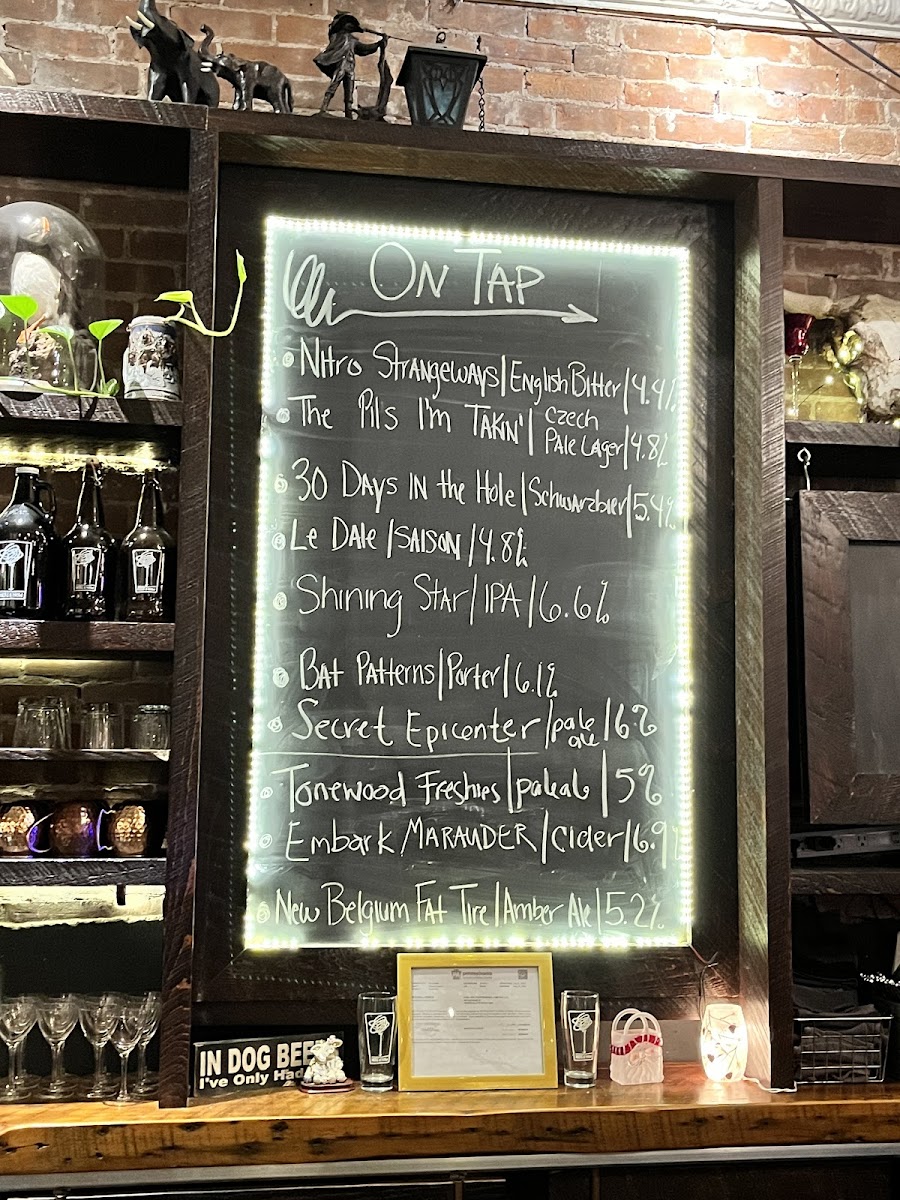 ON TAP
Nitro Strangeways | English Bitter | 4.4%
The Pils I'm Takin' | Czech
Pale Lager | 4.8%
30 Days in the Hole | Schwarzbier | 5.4%
Le Dale | Saison | 4.8%
Shining Star | IPA | 6.6%
Bat Patterns | Porter | 6.1%
Secret Epicenter | pale ale | 6%
Tonewood Freshies | pale ale | 5%
Embark / Marauder | Cider | 6.9%
New Belgium Fat Tire | Amber Ale | 5.2%
IN DOG BEE
I've Only Had